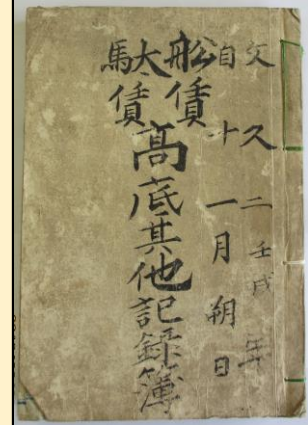 文久二壬戌年
自十一月朔日
舩賃
駄賃
高底其他記録簿